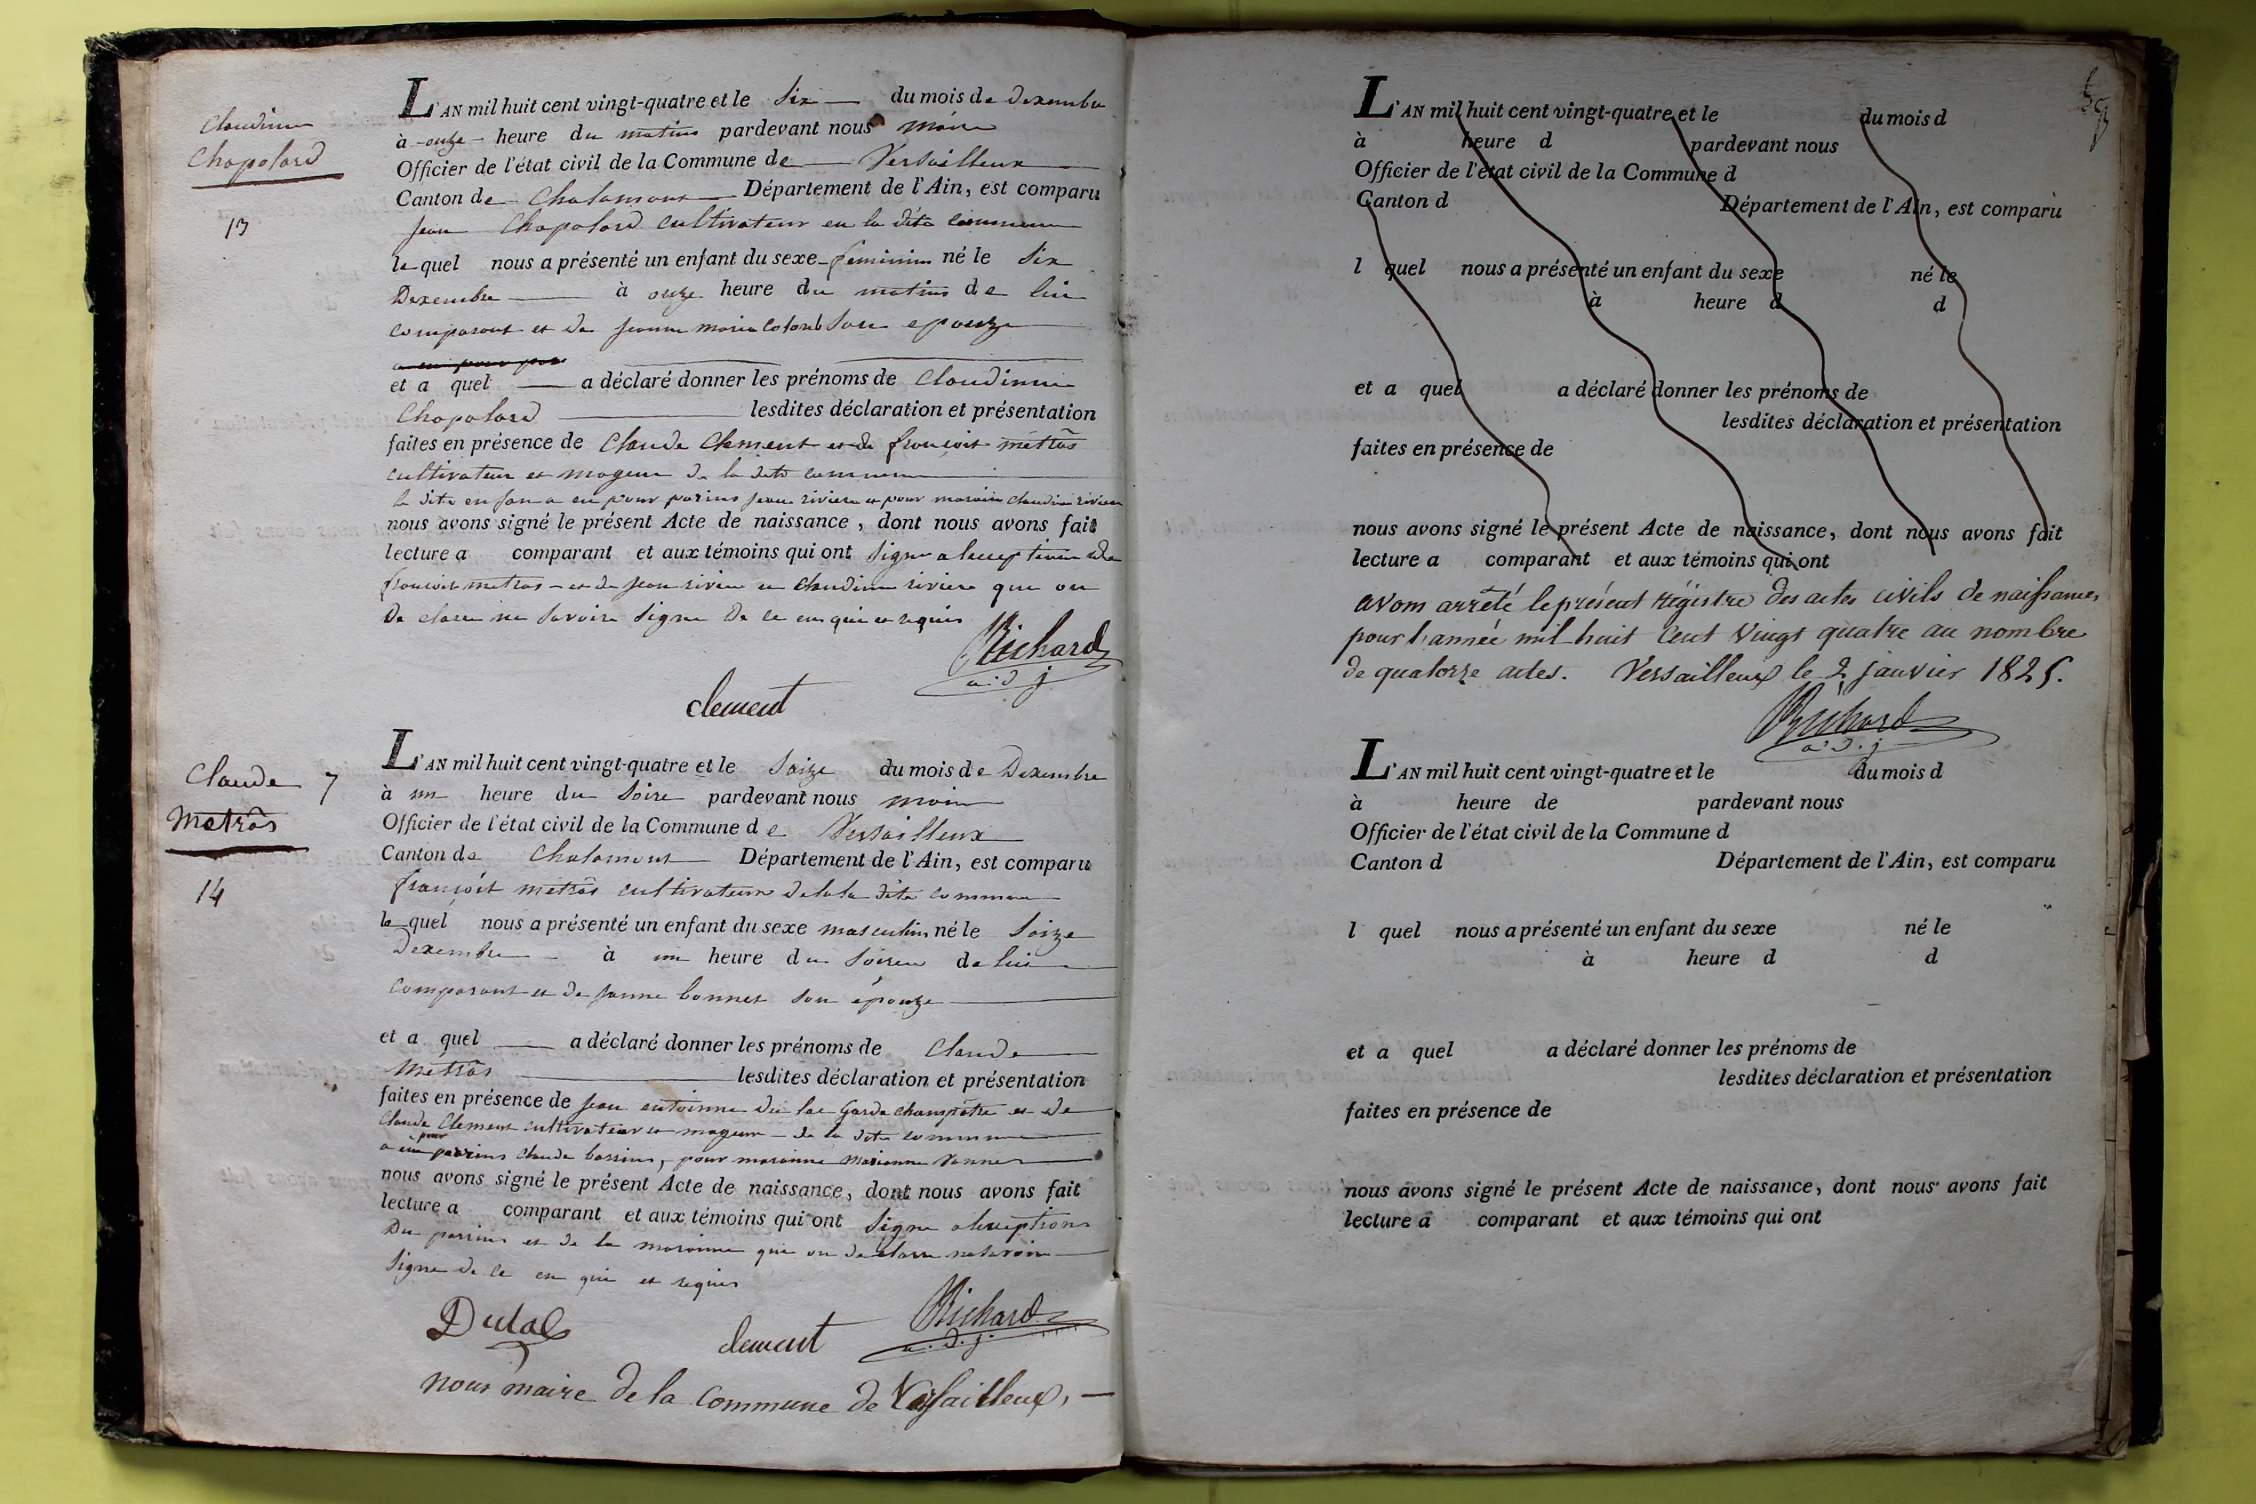 Claudinne
Chapolard
13
L'AN mil huit cent vingt-quatre et le Six du mois de Dexembre
à onze heure du matins pardevant nous maire
Officier de l'état civil de la Commune de Versailleux
Canton de Chalamont Département de l'Ain, est comparu
jean Chapolard cultivateur en la dite commune
le quel nous a présenté un enfant du sexe feminim né le Six
Dexembre à onze heure du matins de lui
comparant et de jeanne marie colomb Son epouze
a eu pour par
et a quel a déclaré donner les prénoms de Claudinne
Chapolard lesdites déclaration et présentation
faites en présence de Claude Clement et de françoit métrâs
cultivateur et mageur de la dite commune
la dite enfan a eu pour parins jean riviere et pour maraine claudine riviere
nous avons signé le présent Acte de naissance, dont nous avons fait
lecture a comparant et aux témoins qui ont Signe a lexception de
françoit metras et de jean riviere et claudinne riviere que on
De clare ne Savoire Signe De ce enquie et requis
Richard
a.d.j
clement
Claude 7
Metrâs
14
L'AN mil huit cent vingt-quatre et le Saize du mois de Dexembre
à un heure du Soire pardevant nous maire
Officier de l'état civil de la Commune de Versailleux
Canton de Chalamont Département de l'Ain, est comparu
françoit métrâs cultivateur de la la dite commune
le quel nous a présenté un enfant du sexe masculin né le Saize
Dexembre à un heure du Soire de lui
comparant et de janne bonnet Son épouze
et a quel a déclaré donner les prénoms de Claude
Métrâs lesdites déclaration et présentation
faites en présence de jean antoinne du lac Garde champêtre et de
Claude Clement cultivateur et mageur de la dite commune
a eu pour parins claude bassins, pour maraine marianne
nous avons signé le présent Acte de naissance, dont nous avons fait
lecture a comparant et aux témoins qui ont Signe a lexception
Du parrins et de la maraine qui on declare ne Savoire
Signe de ce en qui et requis
Dulac clement Richard
a.d.j.
nous maire de la Commune de Versailleux,
L'AN mil huit cent vingt-quatre et le du mois d
à heure d pardevant nous
Officier de l'état civil de la Commune d
Canton d Département de l'Ain, est comparu
l quel nous a présenté un enfant du sexe né le
à heure d d
et a quel a déclaré donner les prénoms de
lesdites déclaration et présentation
faites en présence de
nous avons signé le présent Acte de naissance, dont nous avons fait
lecture a comparant et aux témoins qui ont
avons arrêté le présent régistre des actes civils de naissances
pour l'année mil huit cent vingt quatre au nombre
de quatorze actes. Versailleux le 2 janvier 1825.
Richard
a.d.j
L'AN mil huit cent vingt-quatre et le du mois d
à heure de pardevant nous
Officier de l'état civil de la Commune d
Canton d Département de l'Ain, est comparu
l quel nous a présenté un enfant du sexe né le
à heure d d
et a quel a déclaré donner les prénoms de
lesdites déclaration et présentation
faites en présence de
nous avons signé le présent Acte de naissance, dont nous avons fait
lecture a comparant et aux témoins qui ont